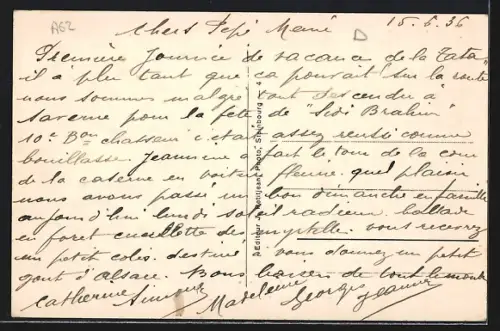 A62
D
Chers Pépé Mémé 15.6.36
Première Journée de vacance de la Tata
il a plu tant que ça pouvait sur la route
nous sommes malgré tout descendu à
Saverne pour la fête de "Sidi Brahim"
10e Bon chasseur c'etait assez reussi comme
bouillasse. Jeannine a fait le tour de la cour
de la caserne en voiture fleurie, quel plaisir
nous avons passé un bon dimanche en famille
aujourd'hui lundi soleil radieux. ballade
en foret cueillette des myrtilles. vous recevrez
un petit colis destiné vous donner un petit
gout d'alsace. Bons baisers de tout le monde
Catherine Simone Madeleine Georges Jeannine
Editeur J. Pettitjean, Photo, Strasbourg